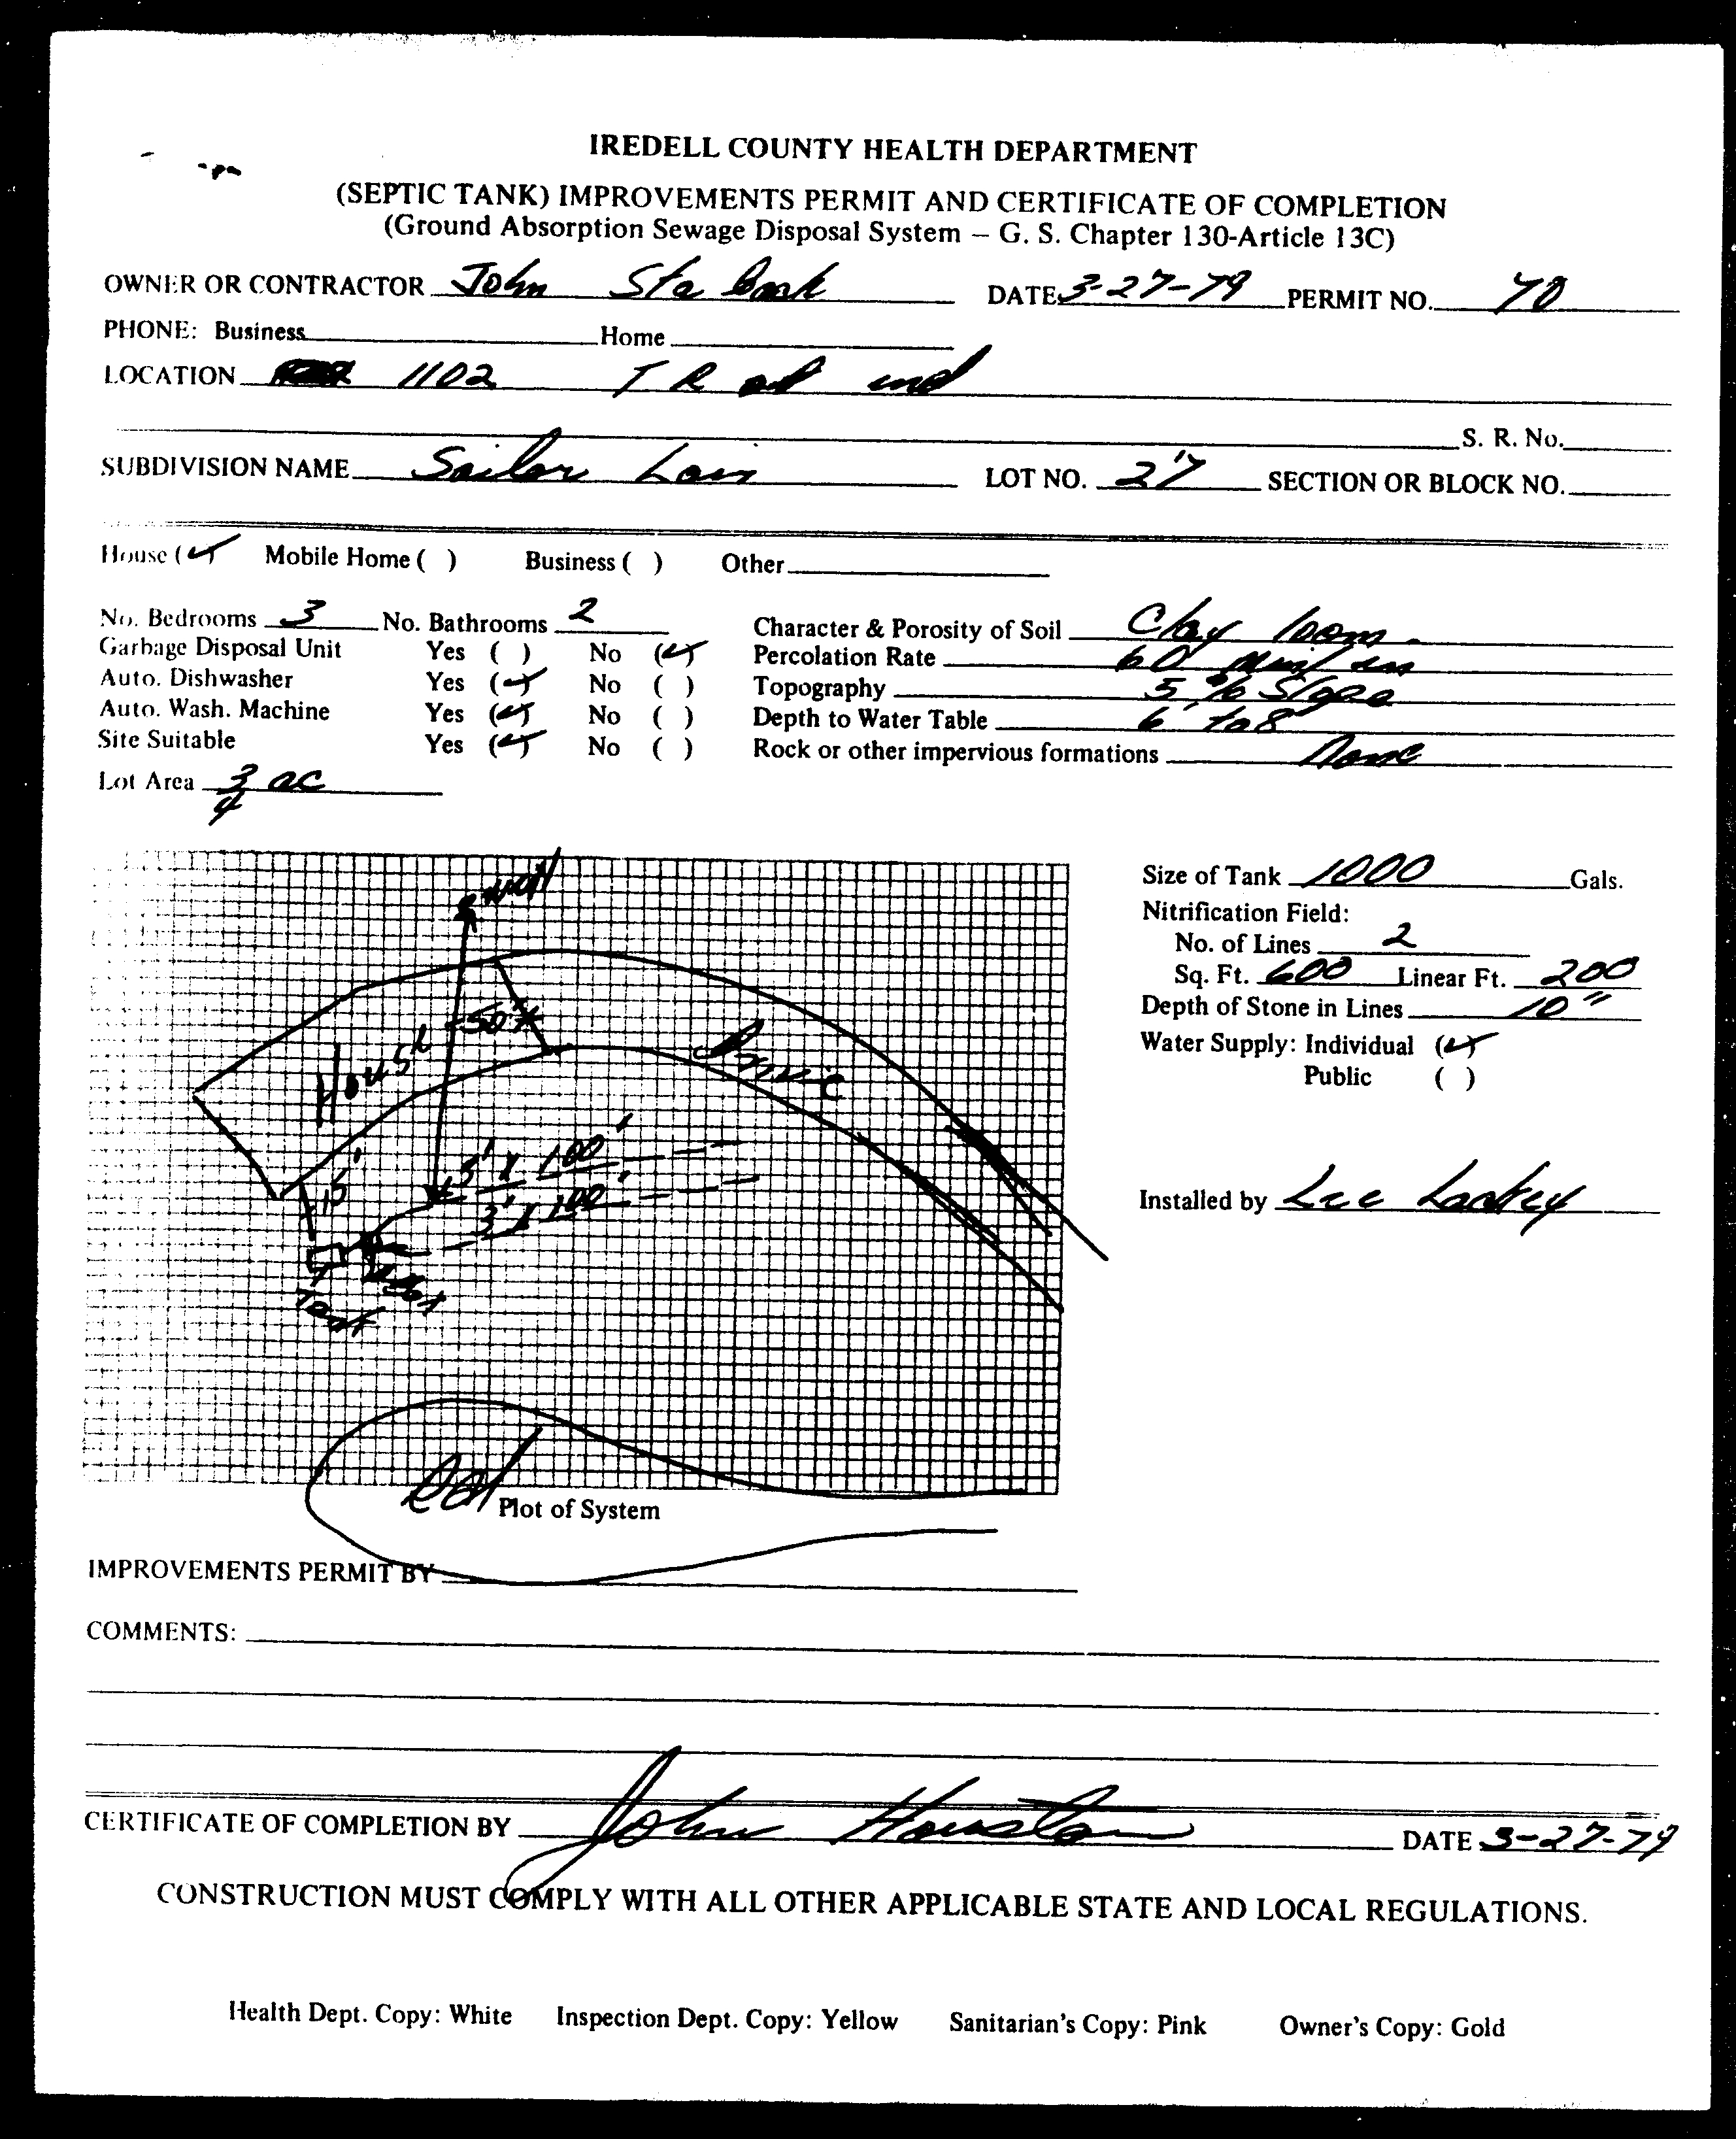 IREDELL COUNTY HEALTH DEPARTMENT
(SEPTIC TANK) IMPROVEMENTS PERMIT AND CERTIFICATE OF COMPLETION
(Ground Absorption Sewage Disposal System — G. S. Chapter 130-Article 13C)
OWNER OR CONTRACTOR John DATE 3-27-79 PERMIT NO. 70
PHONE: Business Home
LOCATION 1102 T R at end
S. R. No.
SUBDIVISION NAME Sailor LOT NO. 27 SECTION OR BLOCK NO.
House (✓) Mobile Home ( ) Business ( ) Other
No. Bedrooms 3 No. Bathrooms 2
Garbage Disposal Unit Yes ( ) No (✓)
Auto. Dishwasher Yes (✓) No ( )
Auto. Wash. Machine Yes (✓) No ( )
Site Suitable Yes (✓) No ( )
Lot Area 3/4 ac
Character & Porosity of Soil Clay loom
Percolation Rate 60 min/in
Topography 5 % Slope
Depth to Water Table 6' to 8'
Rock or other impervious formations None
Size of Tank 1000 Gals.
Nitrification Field:
No. of Lines 2
Sq. Ft. 600 Linear Ft. 200
Depth of Stone in Lines 10"
Water Supply: Individual (✓)
Public ( )
Installed by Lee Lackey
well
50'
House
Drive
15'
3' x 100'
3' x 100'
Tank
Plot of System
IMPROVEMENTS PERMIT BY
COMMENTS:
CERTIFICATE OF COMPLETION BY John Houston DATE 3-27-79
CONSTRUCTION MUST COMPLY WITH ALL OTHER APPLICABLE STATE AND LOCAL REGULATIONS.
Health Dept. Copy: White Inspection Dept. Copy: Yellow Sanitarian's Copy: Pink Owner's Copy: Gold